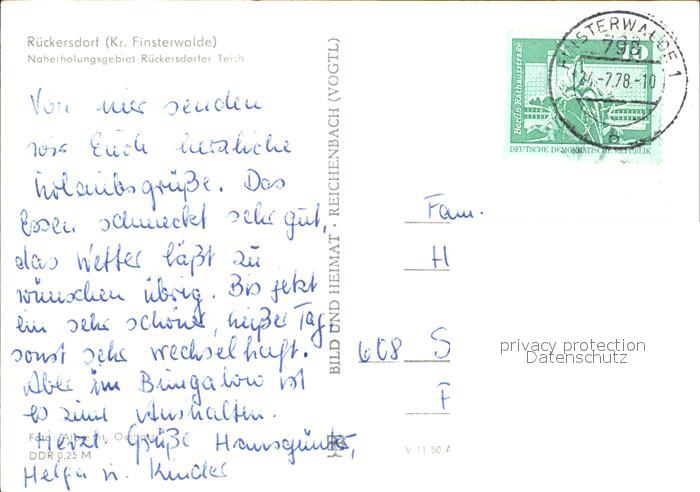 Rückersdorf (Kr. Finsterwalde)
Naherholungsgebiet Rückersdorfer Teich
Von hier senden
wir Euch herzliche
Urlaubsgrüße. Das
Essen schmeckt sehr gut,
das Wetter läßt zu
wünschen übrig. Bis jetzt
ein sehr schöner, heißer Tag
sonst sehr wechselhaft.
Aber im Bungalow ist
es zum Aushalten.
Herzl. Grüße Hansgünter,
Helga u. Kinder
DDR 0,25 M
BILD UND HEIMAT · REICHENBACH (VOGTL)
V 11 50 A
FINSTERWALDE 1
798
24.-7.78.-10
Berlin, Rathausstraße
10
DEUTSCHE DEMOKRATISCHE REPUBLIK
Fam.
H
608 S
F
privacy protection
Datenschutz